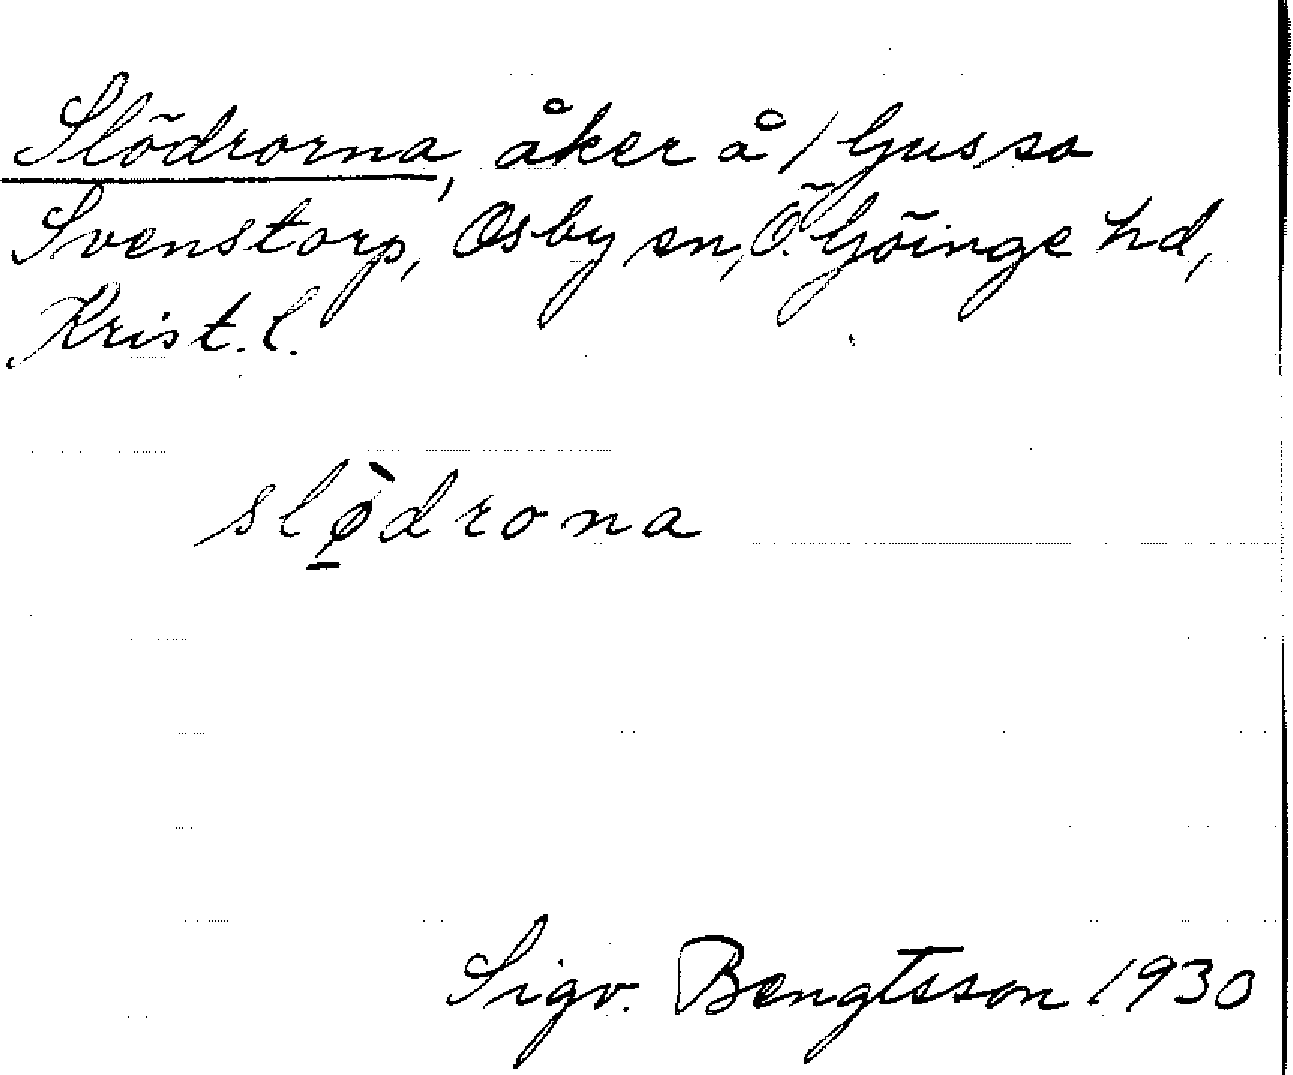 Slödrorna, åker å 1 Gussa
Svenstorp, Osby sn, Ö. Göinge hd,
Krist. l.
slø̀drona
Sigv. Bengtsson 1930